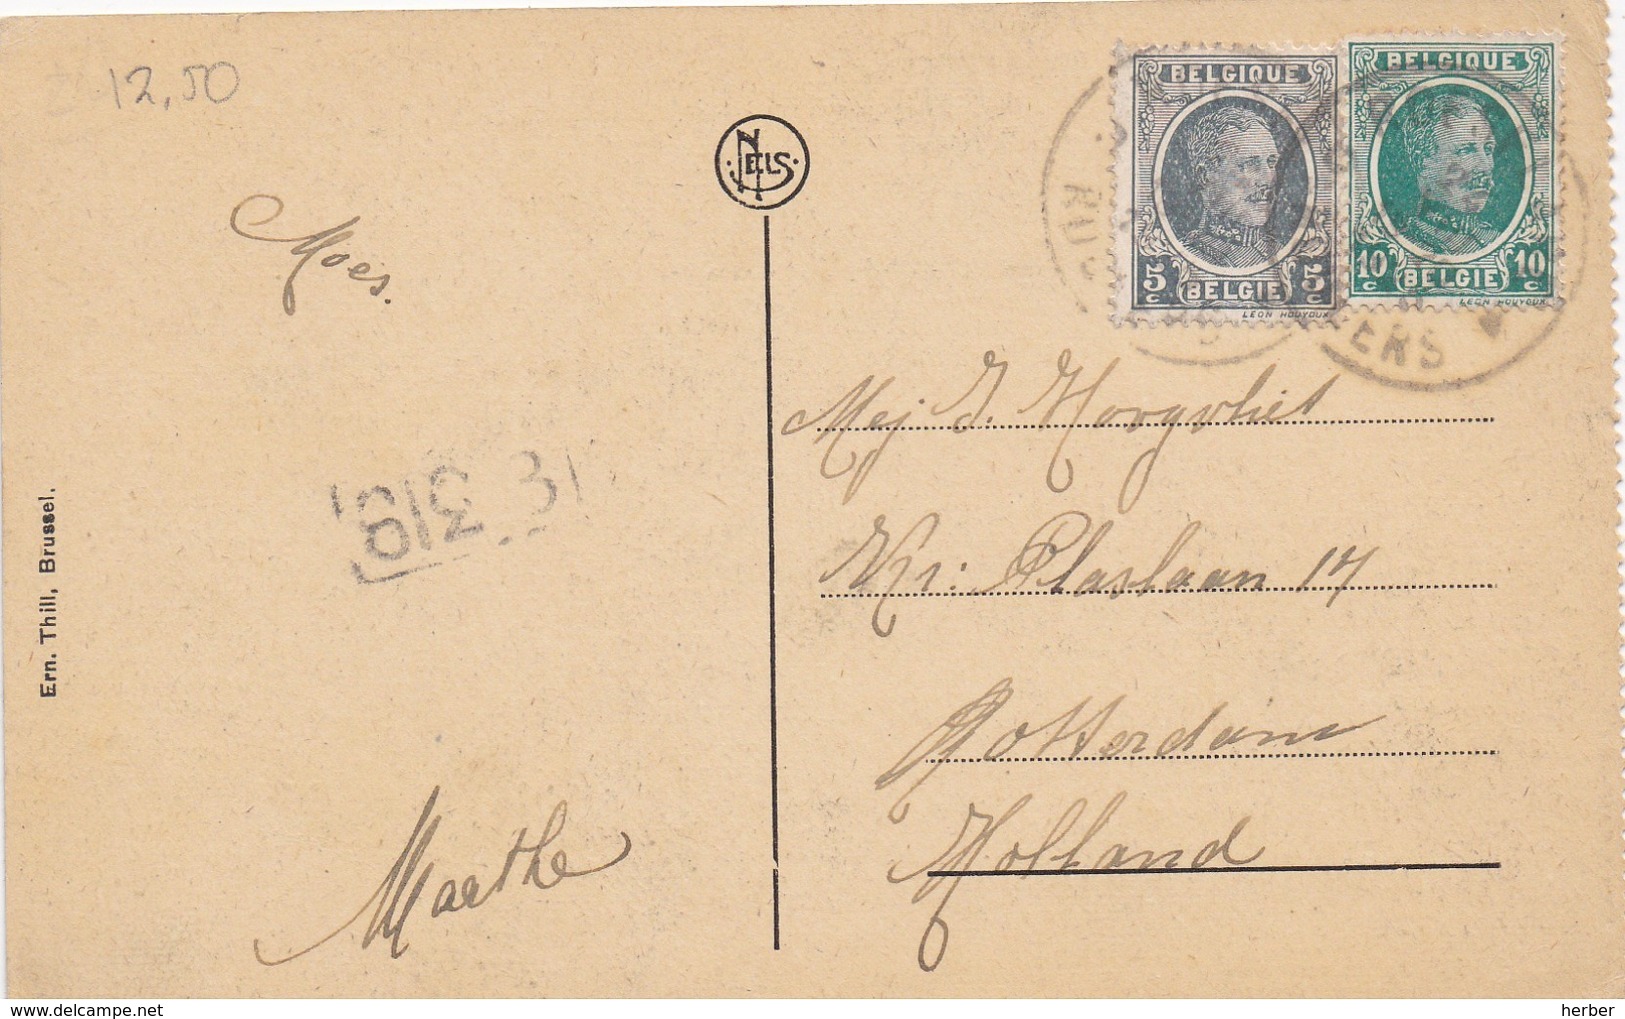 12,50
NELS
BELGIQUE
5c BELGIE 5c
LEON HOUYOUX
BELGIQUE
10c BELGIE 10c
LEON HOUYOUX
ERS
Moes.
Mej J. Hoogvliet
Kr: Plaslaan 17
Rotterdam
Holland
Marthe
Ern. Thill, Brussel.
herber